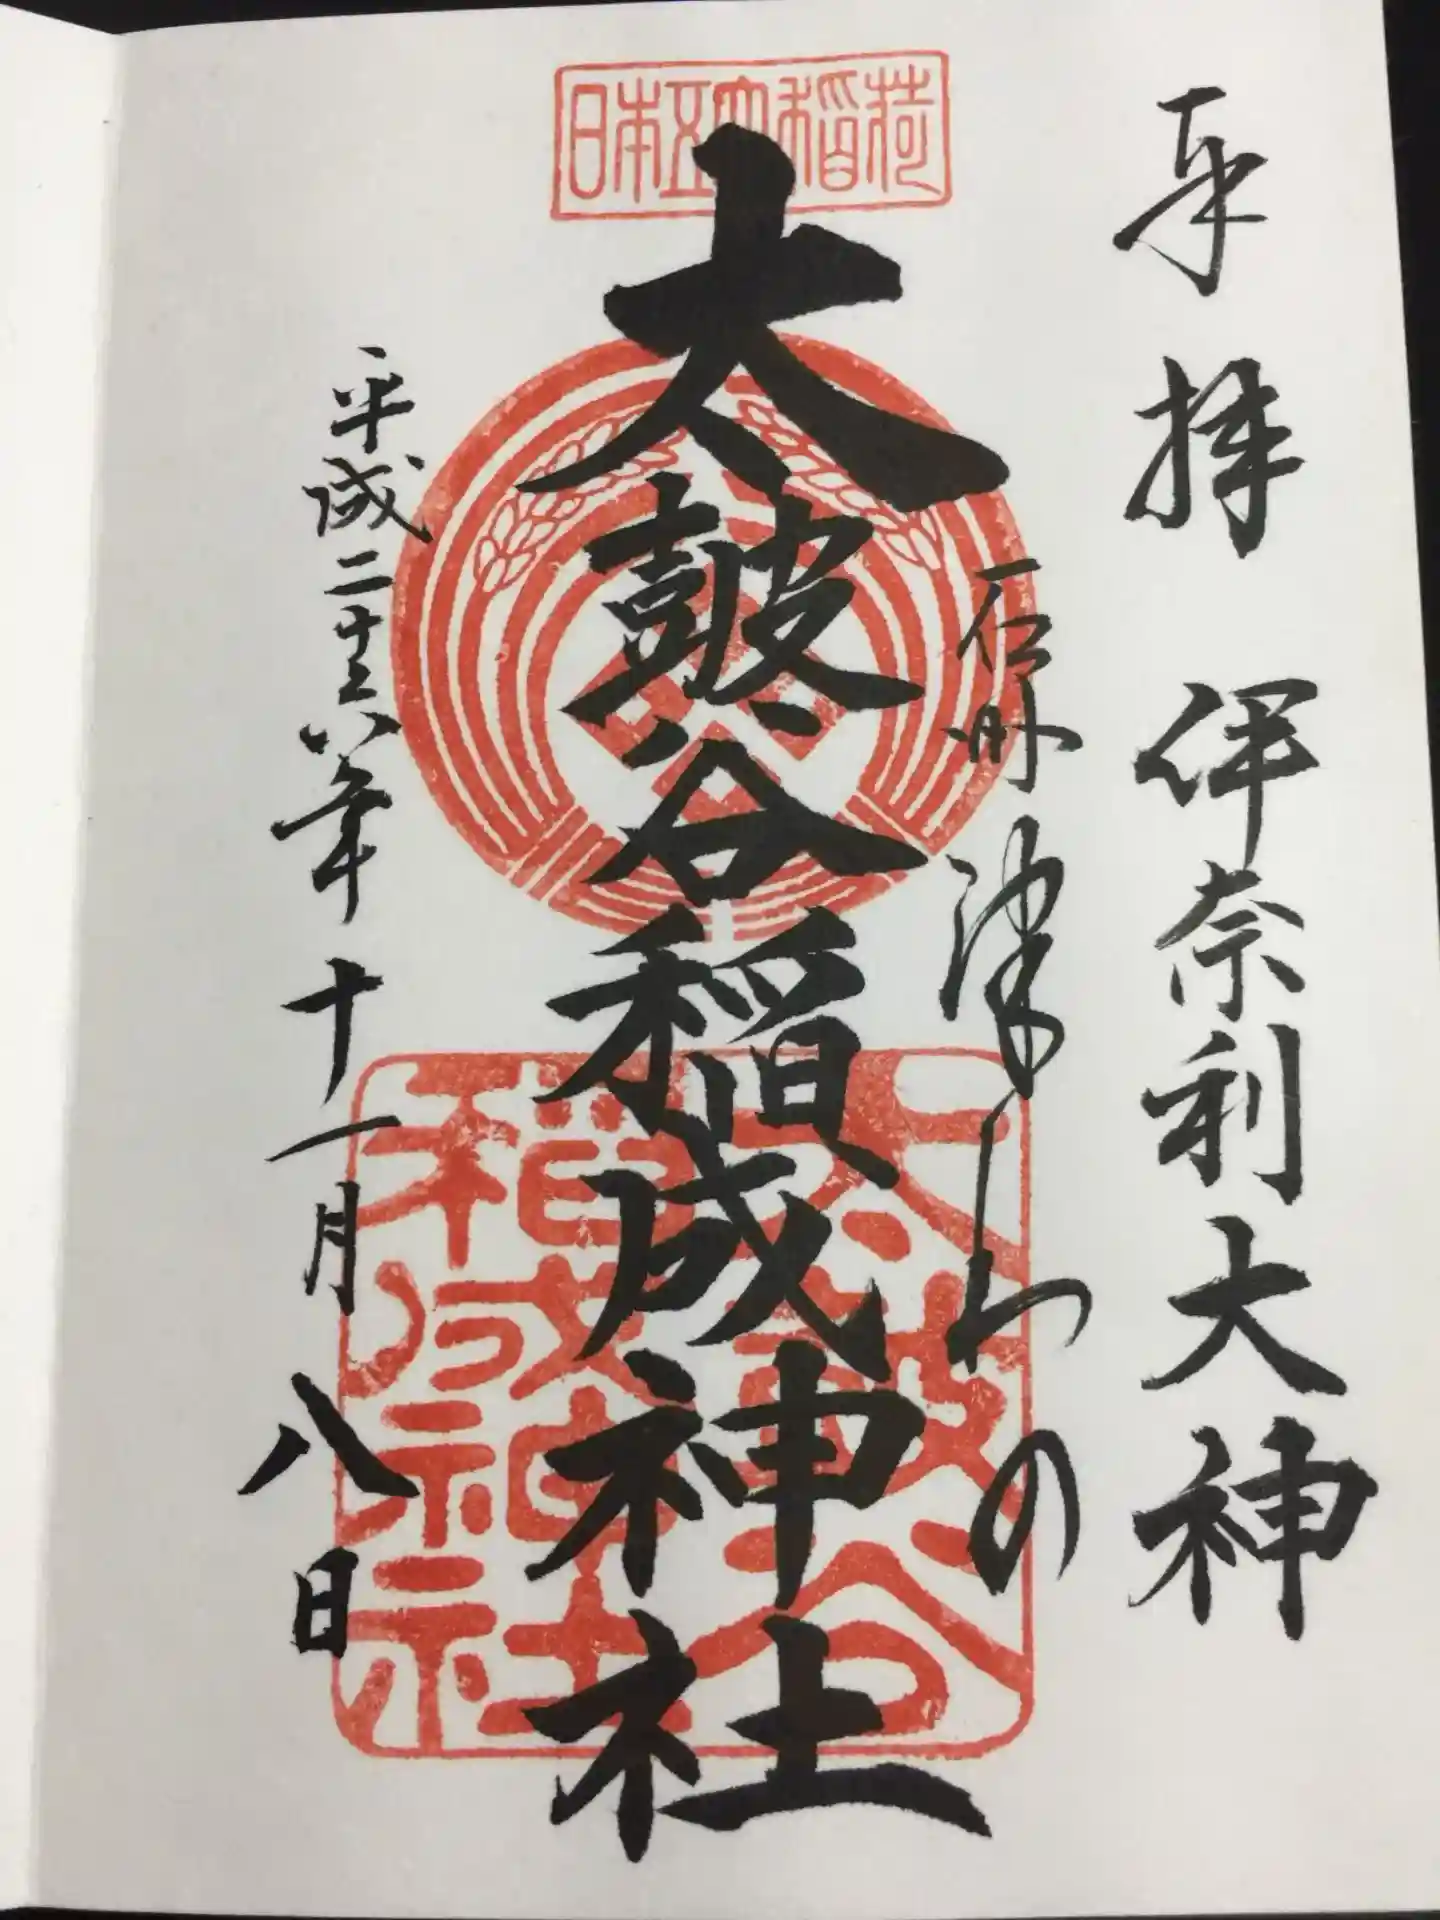 日本五大稲荷
奉拝 伊奈利大神
石州津わの
太皷谷稲成神社
太皷谷
稲成神社
平成二十六年十一月八日